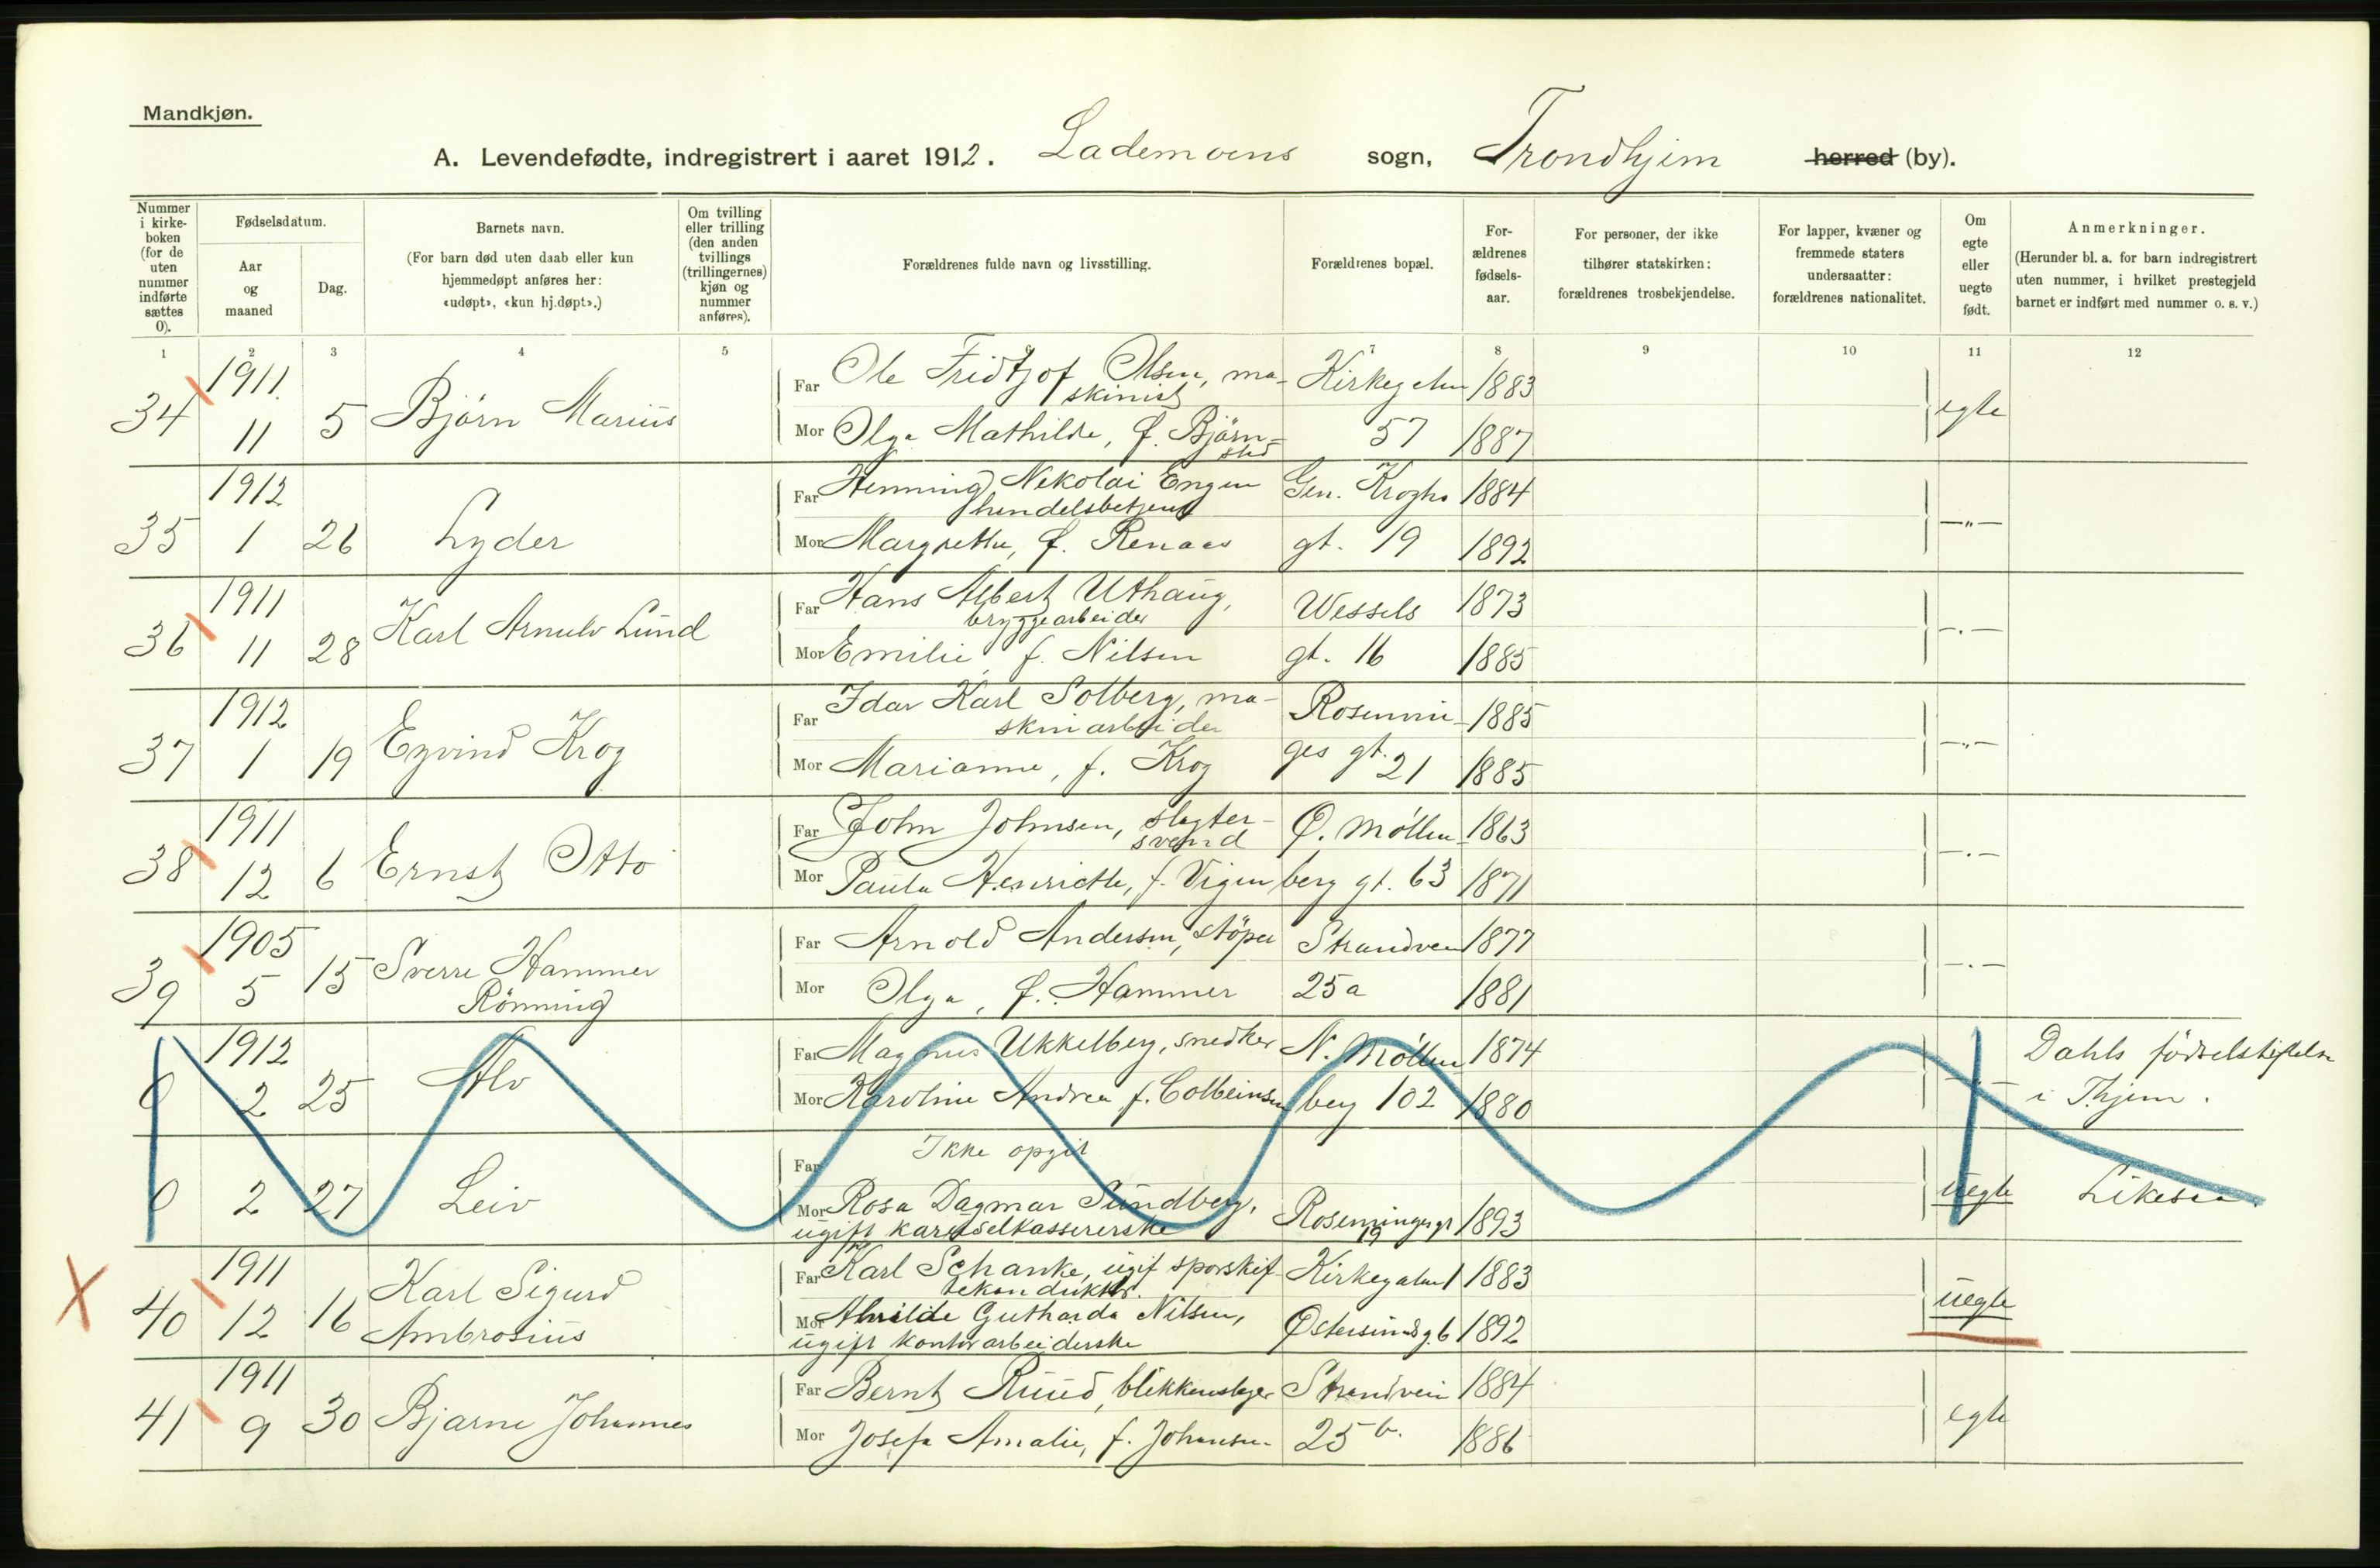 Mandkjøn.
A. Levendefødte, indregistrert i aaret 1912. Lademoens sogn, Trondhjem herred (by).
Nummer i kirke- boken (for de uten nummer indførte sættes 0).
Fødselsdatum.
Aar og maaned
Dag.
Barnets navn.
(For barn død uten daab eller kun hjemmedøpt anføres her: «udøpt», «kun hj.døpt».)
Om tvilling eller trilling (den anden tvillings (trillingernes) kjøn og nummer anføres).
Forældrenes fulde navn og livsstilling.
Forældrenes bopæl.
For- ældrenes fødsels- aar.
For personer, der ikke tilhører statskirken: forældrenes trosbekjendelse.
For lapper, kvæner og fremmede staters undersaatter: forældrenes nationalitet.
Om egte eller uegte født.
Anmerkninger.
(Herunder bl. a. for barn indregistrert uten nummer, i hvilket prestegjeld barnet er indført med nummer o. s. v.)
1 2 3 4 5 6 7 8 9 10 11 12
34 1911. 11 5 Björn Marius
Far Ole Fridtjof Olsen, ma- skinist Kirkegaten 1883
Mor Olga Mathilde, f. Björn- stad 57 1887 egte
35 1912 1 26 Lyder
Far Henning Nikolai Engen handelsbetjent Gen. Kroghs 1884
Mor Margrethe, f. Renaas gt. 19 1892 —"—
36 1911 11 28 Karl Arnulv Lund
Far Hans Albert Uthaug, bryggearbeider Wessels 1873
Mor Emilie, f. Nilsen gt. 16 1885 —"—
37 1912 1 19 Eyvind Krog
Far Idar Karl Solberg, ma- skinarbeider Rosenvin- 1885
Mor Marianne, f. Krog ges gt. 21 1885 —"—
38 1911 12 6 Ernst Otto
Far John Johnsen, slagter- svend Ø. Möllen- 1863
Mor Paula Henriette, f. Vigen berg gt. 63 1871 —"—
39 1905 5 15 Sverre Hammer Rönning
Far Arnold Andersen, støper Strandveien 1877
Mor Olga, f. Hammer 25a 1881 —"—
0 1912 2 25 Alv
Far Magnus Ukkelberg, snedker N. Möllen 1874
Mor Karoline Andrea f. Colbeinsen berg 102 1880
Dahls födselsstiftelse i Thjem.
0 2 27 Leiv
Far Ikke opgit
Mor Rosa Dagmar Sundberg, ugift karuselkassererske Rosenvinges gt 19 1893 uegte Likesaa.
X 40 1911 12 16 Karl Sigurd Ambrosius
Far Karl Schanke, ugift sporskif- tekonduktør. Kirkegaten 1 1883
Mor Gutharda Nilsen, ugift kontorarbeiderske Østersundsg. 6 1892 uegte
41 1911 9 30 Bjarne Johannes
Far Bernt Ruud, blikkenslager Strandveien 1884
Mor Josefa Amalie, f. Johansen 25 b. 1886 egte